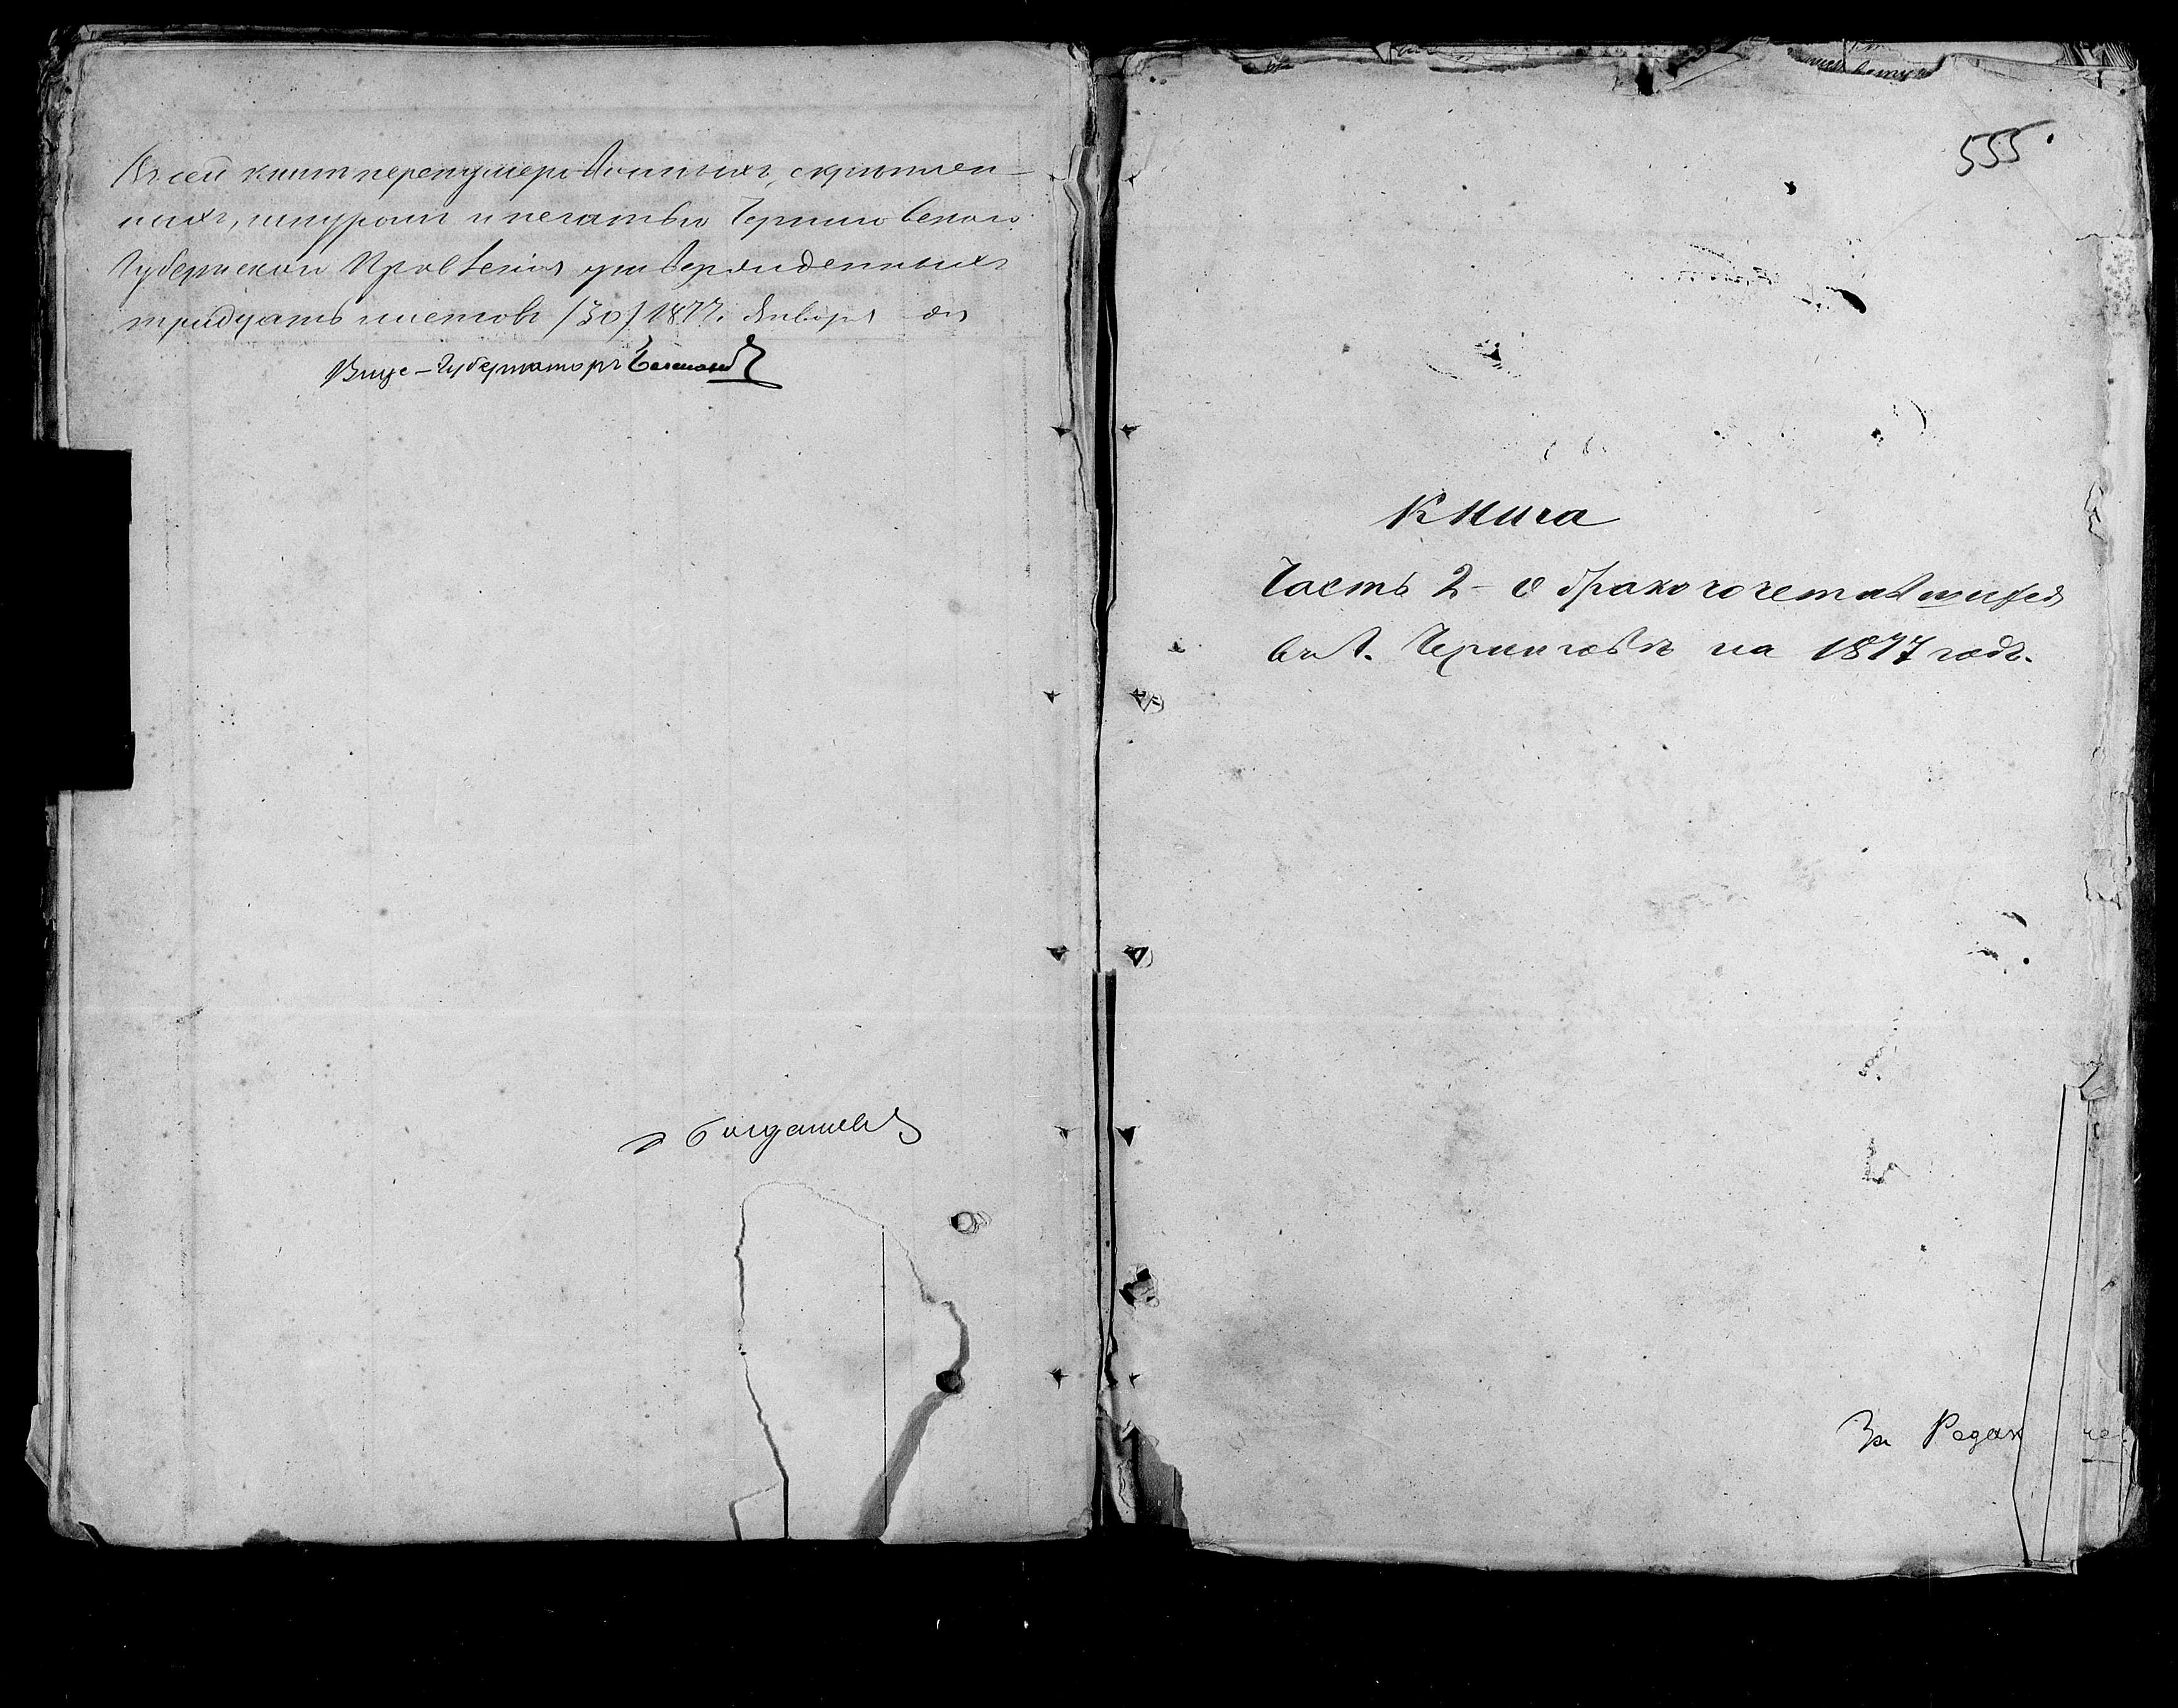 Въ сей книгѣ перенумерованныхъ, скрѣплен-
ныхъ, шнуромъ и печатью Черниговскаго
Губернскаго Правленія утвержденныхъ
тридцать листовъ /30/ 1877. Января дня
Вице-Губернаторъ
555.
Книга
Часть 2-я о бракосочетавшихся
въ г. Черниговѣ на 1877 годъ.
За Редак